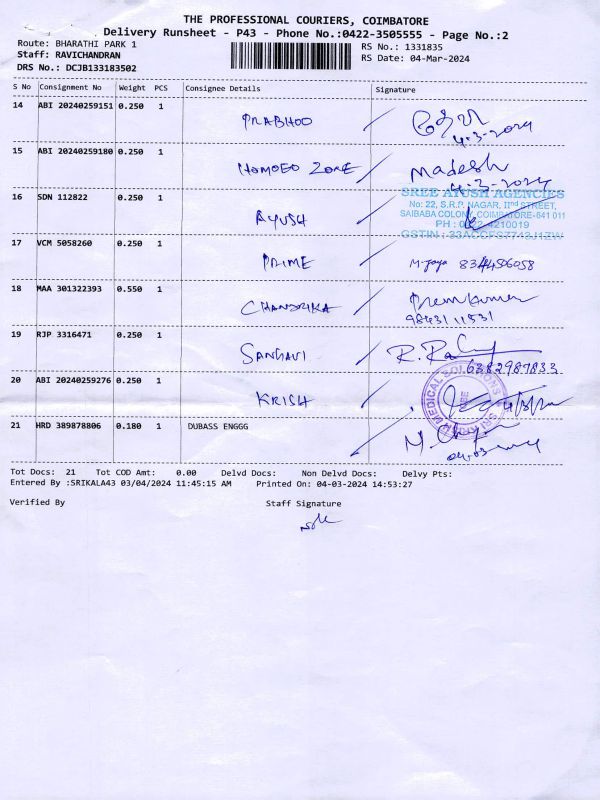 THE PROFESSIONAL COURIERS, COIMBATORE
Delivery Runsheet - P43 - Phone No.:0422-3505555 - Page No.:2
Route: BHARATHI PARK 1
RS No.: 1331835
Staff: RAVICHANDRAN
RS Date: 04-Mar-2024
DRS No.: DCJB133183502
S No Consignment No Weight PCS Consignee Details Signature
14 ABI 20240259151 0.250 1 PRABHOO
4-3-2024
15 ABI 20240259180 0.250 1 HOMOEO ZONE Madesh
4-3-2024
SREE AYUSH AGENCIES
16 SDN 112822 0.250 1 AYUSH
No: 22, S.R.P. NAGAR, IInd STREET,
SAIBABA COLONY, COIMBATORE-641 011
PH : 0422-4210019
17 VCM 5058260 0.250 1 PRIME M.Jaya 8344506058
18 MAA 301322393 0.550 1 CHANDRIKA Premkumar
98431 11531
19 RJP 3316471 0.250 1 SANGAVI
6382987833
20 ABI 20240259276 0.250 1 KRISH
MEDICAL SOLUTIONS
21 HRD 389878806 0.180 1 DUBASS ENGGG
Tot Docs: 21 Tot COD Amt: 0.00 Delvd Docs: Non Delvd Docs: Delvy Pts:
Entered By :SRIKALA43 03/04/2024 11:45:15 AM Printed On: 04-03-2024 14:53:27
Verified By Staff Signature